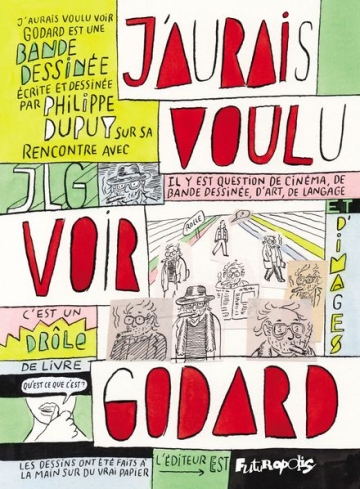 J'AURAIS VOULU VOIR
GODARD EST UNE
BANDE
DESSINÉE
ÉCRITE ET DESSINÉE
PAR PHILIPPE
DUPUY SUR SA
RENCONTRE AVEC
JLG
J'AURAIS
VOULU
IL Y EST QUESTION DE CINÉMA, DE
BANDE DESSINÉE, D'ART, DE LANGAGE
ET D'IMAGES
VOIR
ROLLE
C'EST UN
DRÔLE
DE LIVRE
QU'EST CE QUE C'EST?
GODARD
LES DESSINS ONT ÉTÉ FAITS À
LA MAIN SUR DU VRAI PAPIER
L'ÉDITEUR EST
FUTUROPOLIS